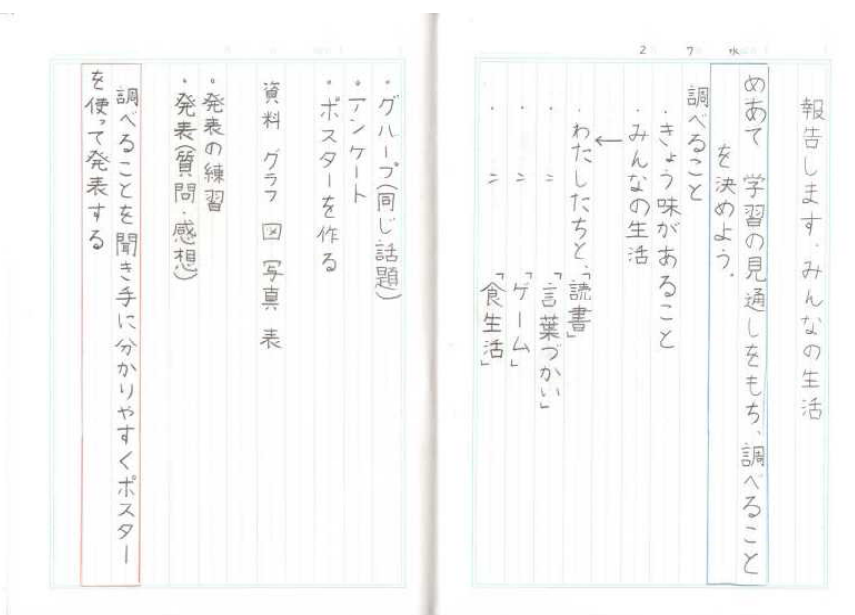 2 7 水
報告します、みんなの生活
めあて 学習の見通しをもち、調べること
を決めよう。
調べること
・きょう味があること
・みんなの生活
↓
・わたしたちと、「読書」
・ 〃 「言葉づかい」
・ 〃 「ゲーム」
・ 〃 「食生活」
・グループ(同じ話題)
・アンケート
・ポスターを作る
資料 グラフ 図 写真 表
・発表の練習
・発表(質問・感想)
調べることを聞き手に分かりやすくポスター
を使って発表する